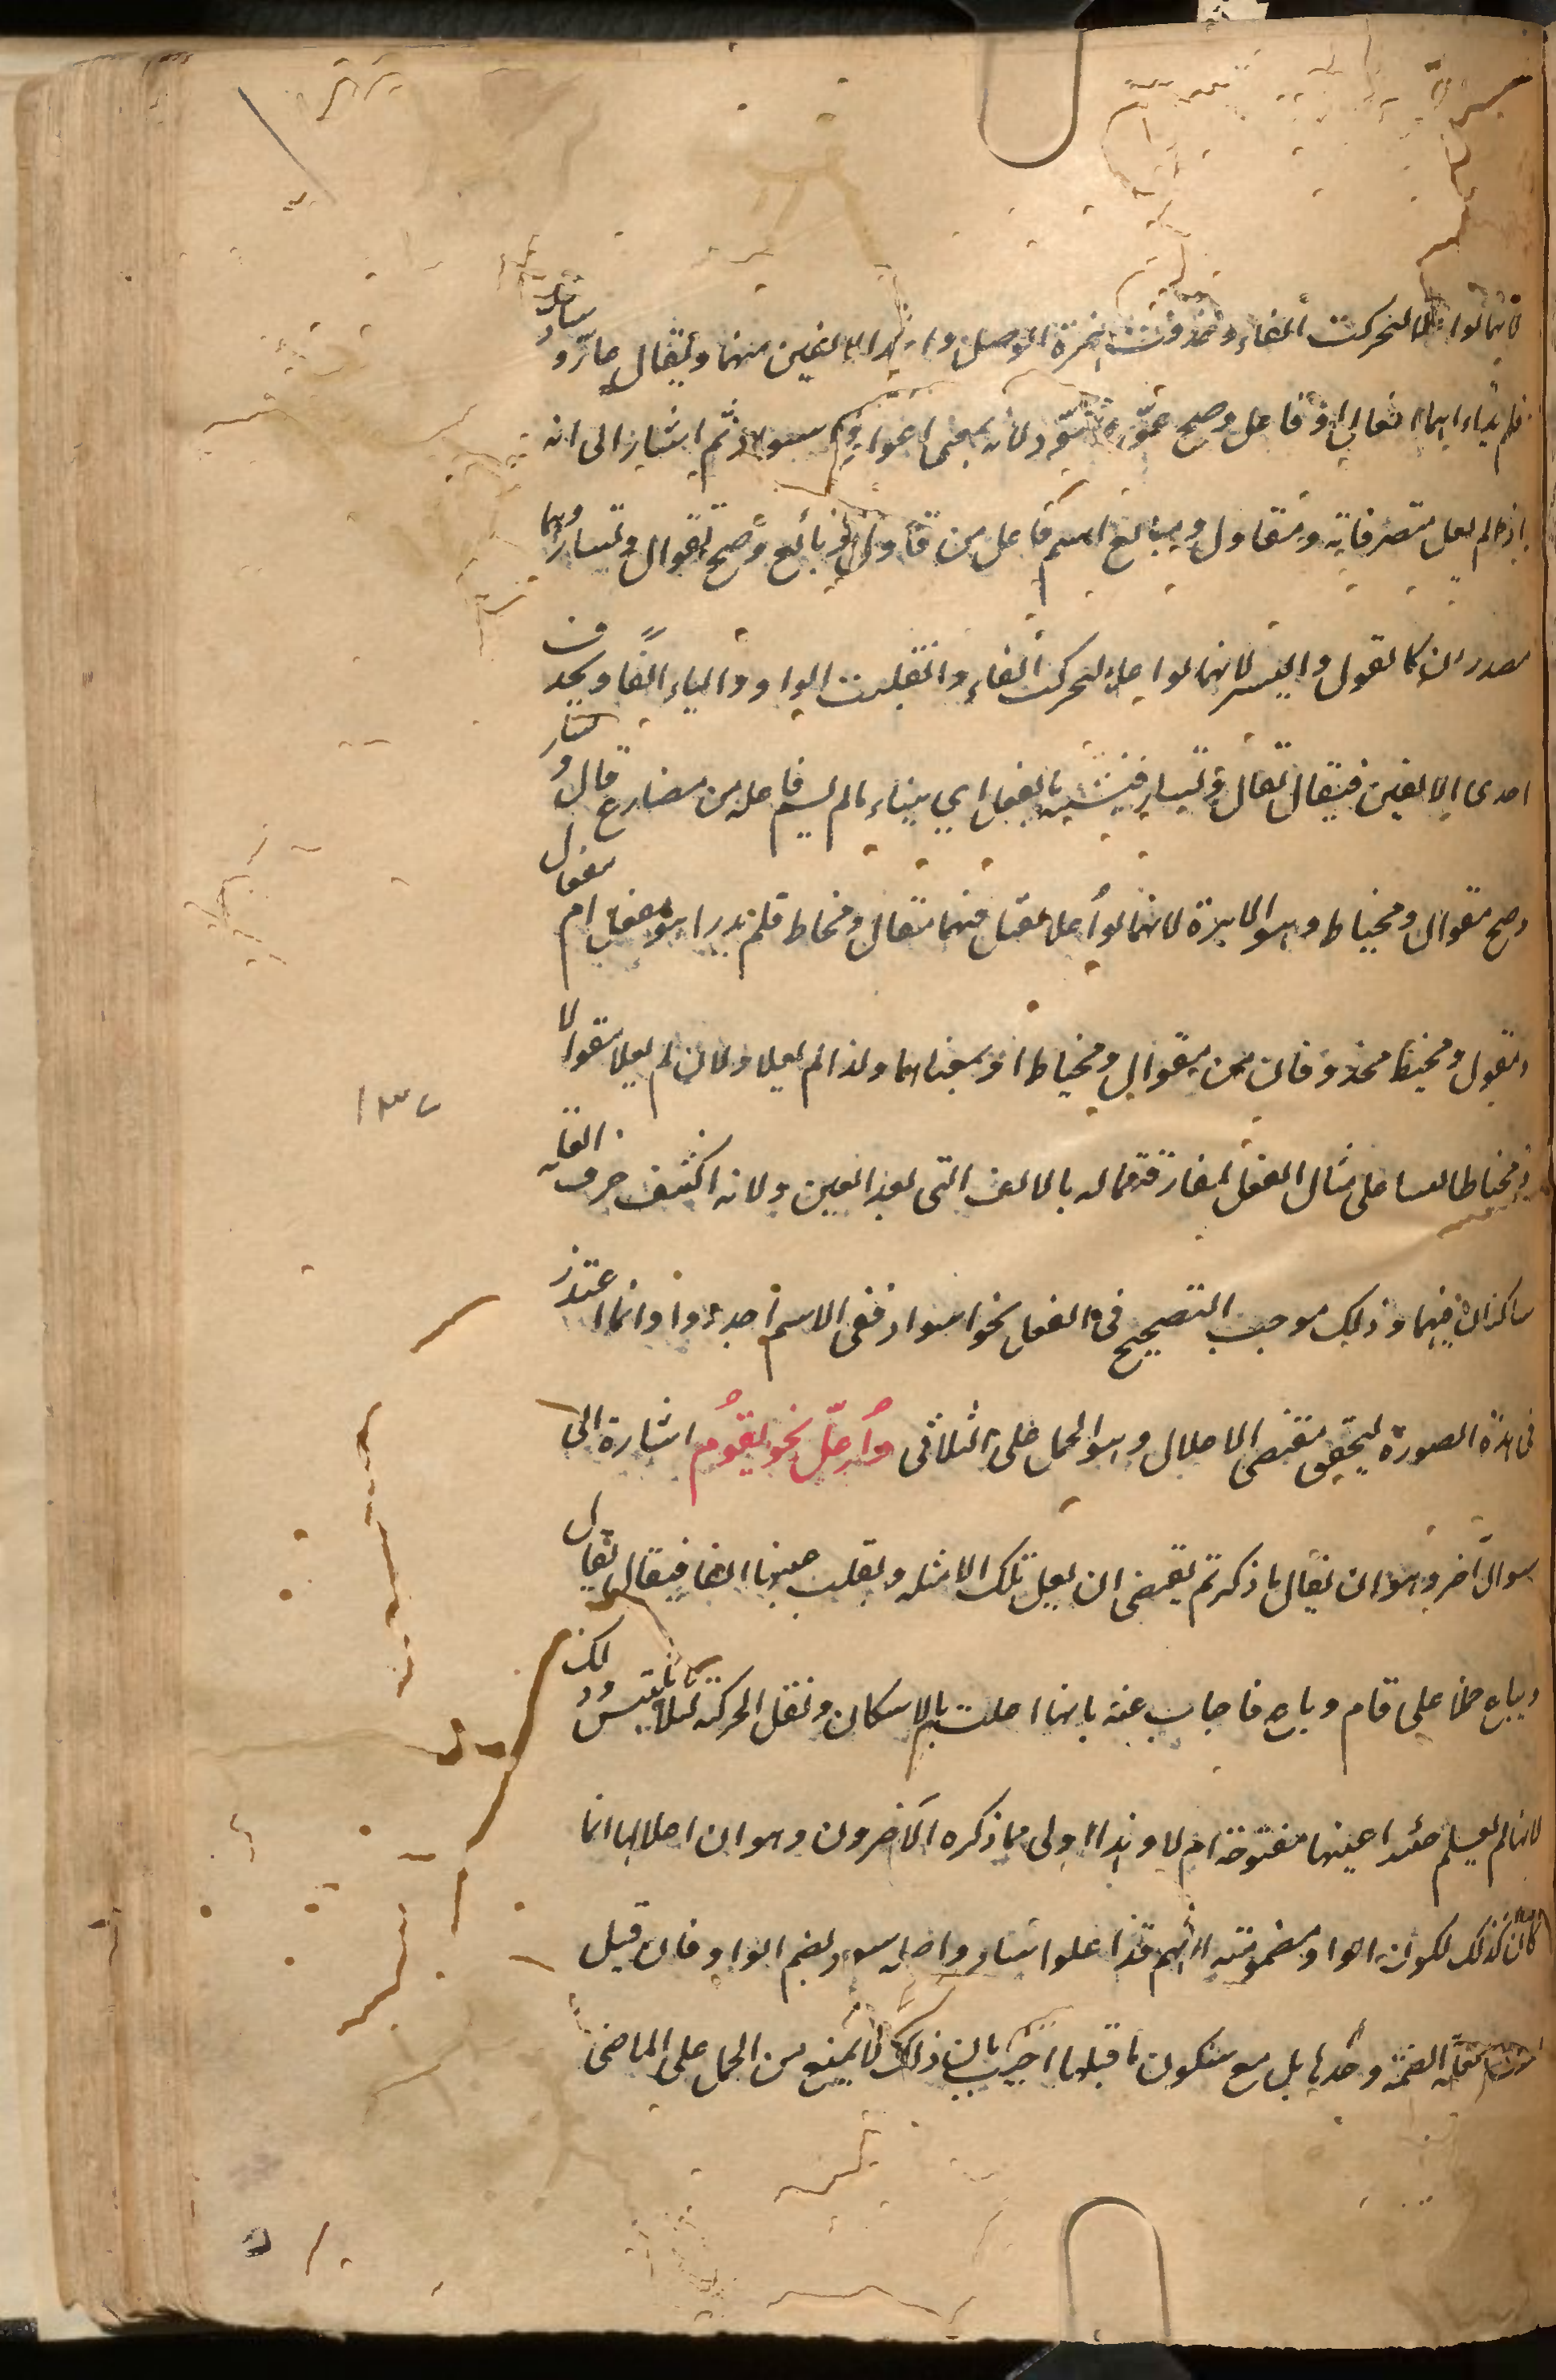 لانهما لوا علا لتحركت الفاء وحذفت همزة الوصل واحدى الالفين منهما ويقال عارّ وسادّ
فلم يدر ايهما افعالّ او فاعل وصح عوّر وسوّد لانه بمعنى اعوارّ واسوادّ ثم اشار الى انه
اذا لم يعل متصرفاته ومقاول ومبايع اسم فاعل من قاول وبايع وصح تقوال وتسيار وهما
مصدران كالقول والسير لانهما لوا علا لتحركت الفاء وانقلبت الواو والياء الفا ويحذف
احدى الالفين فيقال تقال وتسار فيشتبه بالفعل اي ببناء ما لم يسم فاعله من مضارع قال وسار
وصح مقوال ومخياط وهو الابرة لانهما لوا علا لقيل فيهما مقال ومخاط فلم يدر اهو مفعل ام مفعال
ومقول ومخيط محذوفان من مقوال ومخياط او بمعناهما ولذا لم يعلا ولان لم يعلا مقوالا
ومخياطا ليسا على مثال الفعل لمفارقتهما له بالالف التي بعد العين ولانه اكتنف حرف العلة
ساكنان فيهما وذلك موجب التصحيح في الفعل نحو اسوادّ ففي الاسم اجدر وانما اعتذر
في هذه الصورة ليحقق مقتضى الاعلال وهو الحمل على الثلاثي واُعِلّ نحو يقوم اشارة الى
سوال آخر وهو ان يقال ما ذكرتم يقتضي ان يعل تلك الامثلة وبقلب عينها الفا فيقال يقال
ويباع حملا على قام وباع فاجاب عنه بانها اعلت بالاسكان ونقل الحركة لئلا يلتبس وذلك
لانها لم يعلم حينئذ اعينها مفتوحة ام لا وهذا اولى مما ذكره الآخرون وهو ان اعلالها انما
كان كذلك لكون الواو مضمومة لانهم قد اعلوا ساد واصله سود بضم الواو فان قيل
الضمة وحدها بل مع سكون ما قبلها اجيب بان ذلك لا يمنع من الحمل على الماضي
١٣٧